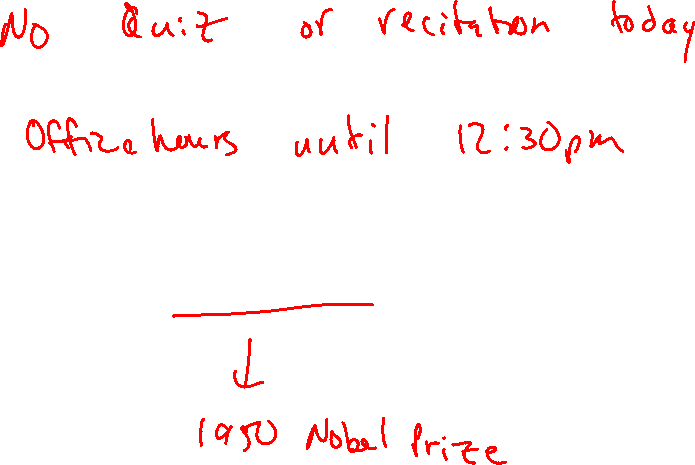 No Quiz or recitation today
Office hours until 12:30pm
1950 Nobel Prize